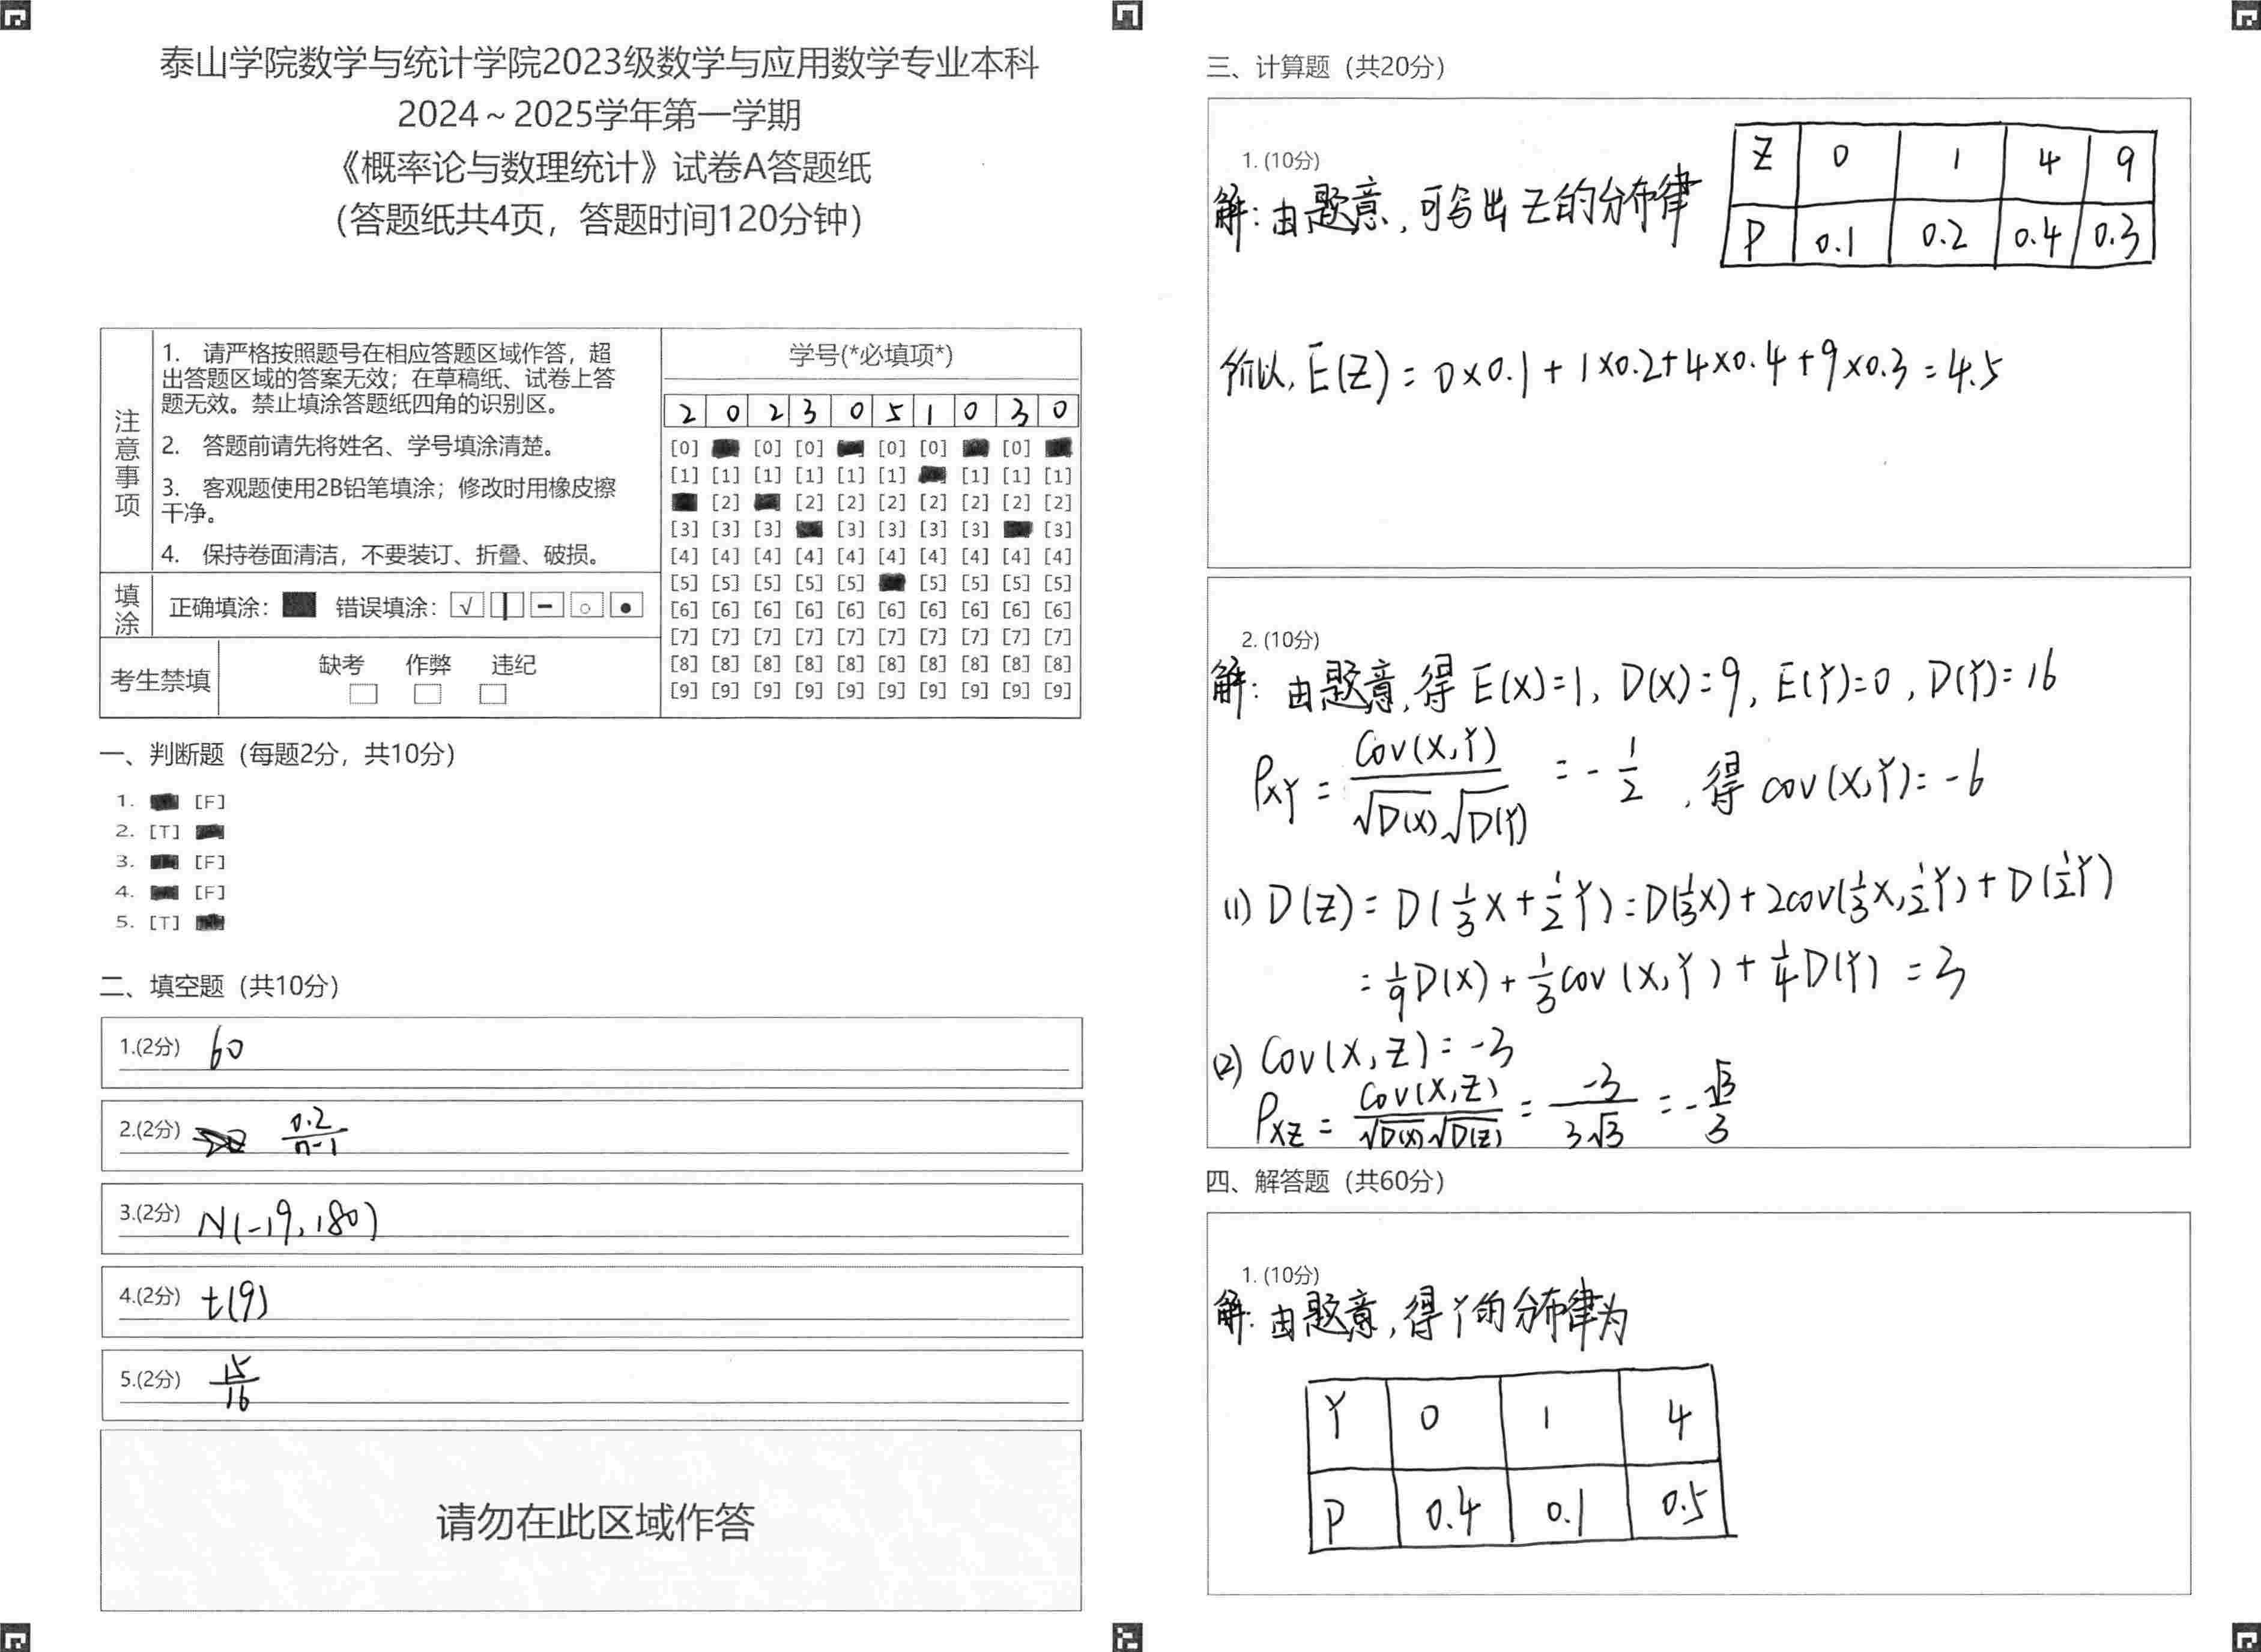 泰山学院数学与统计学院2023级数学与应用数学专业本科
2024～2025学年第一学期
《概率论与数理统计》试卷A答题纸
（答题纸共4页，答题时间120分钟）
注意事项
1. 请严格按照题号在相应答题区域作答，超
出答题区域的答案无效；在草稿纸、试卷上答
题无效。禁止填涂答题纸四角的识别区。
2. 答题前请先将姓名、学号填涂清楚。
3. 客观题使用2B铅笔填涂；修改时用橡皮擦
干净。
4. 保持卷面清洁，不要装订、折叠、破损。
填涂 正确填涂： 错误填涂： √
考生禁填 缺考 作弊 违纪
学号(*必填项*)
2 0 2 3 0 5 1 0 3 0
[0] [0] [0] [0] [0] [0]
[1] [1] [1] [1] [1] [1] [1] [1] [1]
[2] [2] [2] [2] [2] [2] [2] [2]
[3] [3] [3] [3] [3] [3] [3] [3]
[4] [4] [4] [4] [4] [4] [4] [4] [4] [4]
[5] [5] [5] [5] [5] [5] [5] [5] [5]
[6] [6] [6] [6] [6] [6] [6] [6] [6] [6]
[7] [7] [7] [7] [7] [7] [7] [7] [7] [7]
[8] [8] [8] [8] [8] [8] [8] [8] [8] [8]
[9] [9] [9] [9] [9] [9] [9] [9] [9] [9]
一、判断题（每题2分，共10分）
1. [F]
2. [T]
3. [F]
4. [F]
5. [T]
二、填空题（共10分）
1.(2分) 60
2.(2分) 0.2/(n-1)
3.(2分) N(-19,180)
4.(2分) t(9)
5.(2分) 15/16
请勿在此区域作答
三、计算题（共20分）
1. (10分)
解：由题意，可写出Z的分布律
Z 0 1 4 9
P 0.1 0.2 0.4 0.3
所以，E(Z)=0×0.1+1×0.2+4×0.4+9×0.3=4.5
2. (10分)
解：由题意，得E(X)=1，D(X)=9，E(Y)=0，D(Y)=16
ρXY = Cov(X,Y)/(√D(X)√D(Y)) = -1/2，得cov(X,Y)=-6
(1) D(Z)=D(1/3X+1/2Y)=D(1/3X)+2cov(1/3X,1/2Y)+D(1/2Y)
=1/9D(X)+1/3cov(X,Y)+1/4D(Y)=3
(2) Cov(X,Z)=-3
ρXZ = Cov(X,Z)/(√D(X)√D(Z)) = -3/(3√3) = -√3/3
四、解答题（共60分）
1. (10分)
解：由题意，得Y的分布律为
Y 0 1 4
P 0.4 0.1 0.5